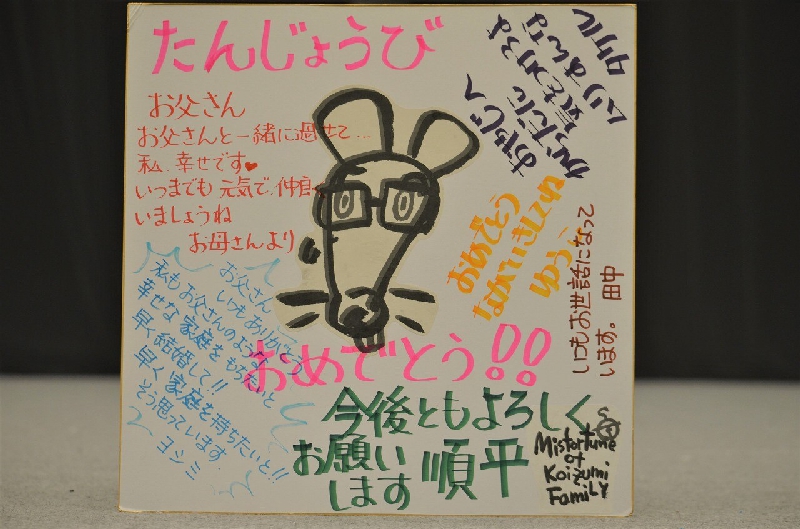 たんじょうび
お父さん
お父さんと一緒に過せて...
私、幸せです♥
いつまでも 元気で、仲良く
いましょうね
お母さんより
おやじへ
からだに
気をつけろよ
ムリすんな
タケル
おめでとう
ながいきしてね
ゆうか
いつもお世話になって
います。 田中
お父さん
いつもありがとう
私もお父さんのような
幸せな家庭をもちたいと
早く結婚して!!
早く家庭を持ちたいと!!
そう思っています。
ヨシミ
おめでとう!!
今後ともよろしく
お願い
します
順平
Misfortune
of
Koizumi
Family